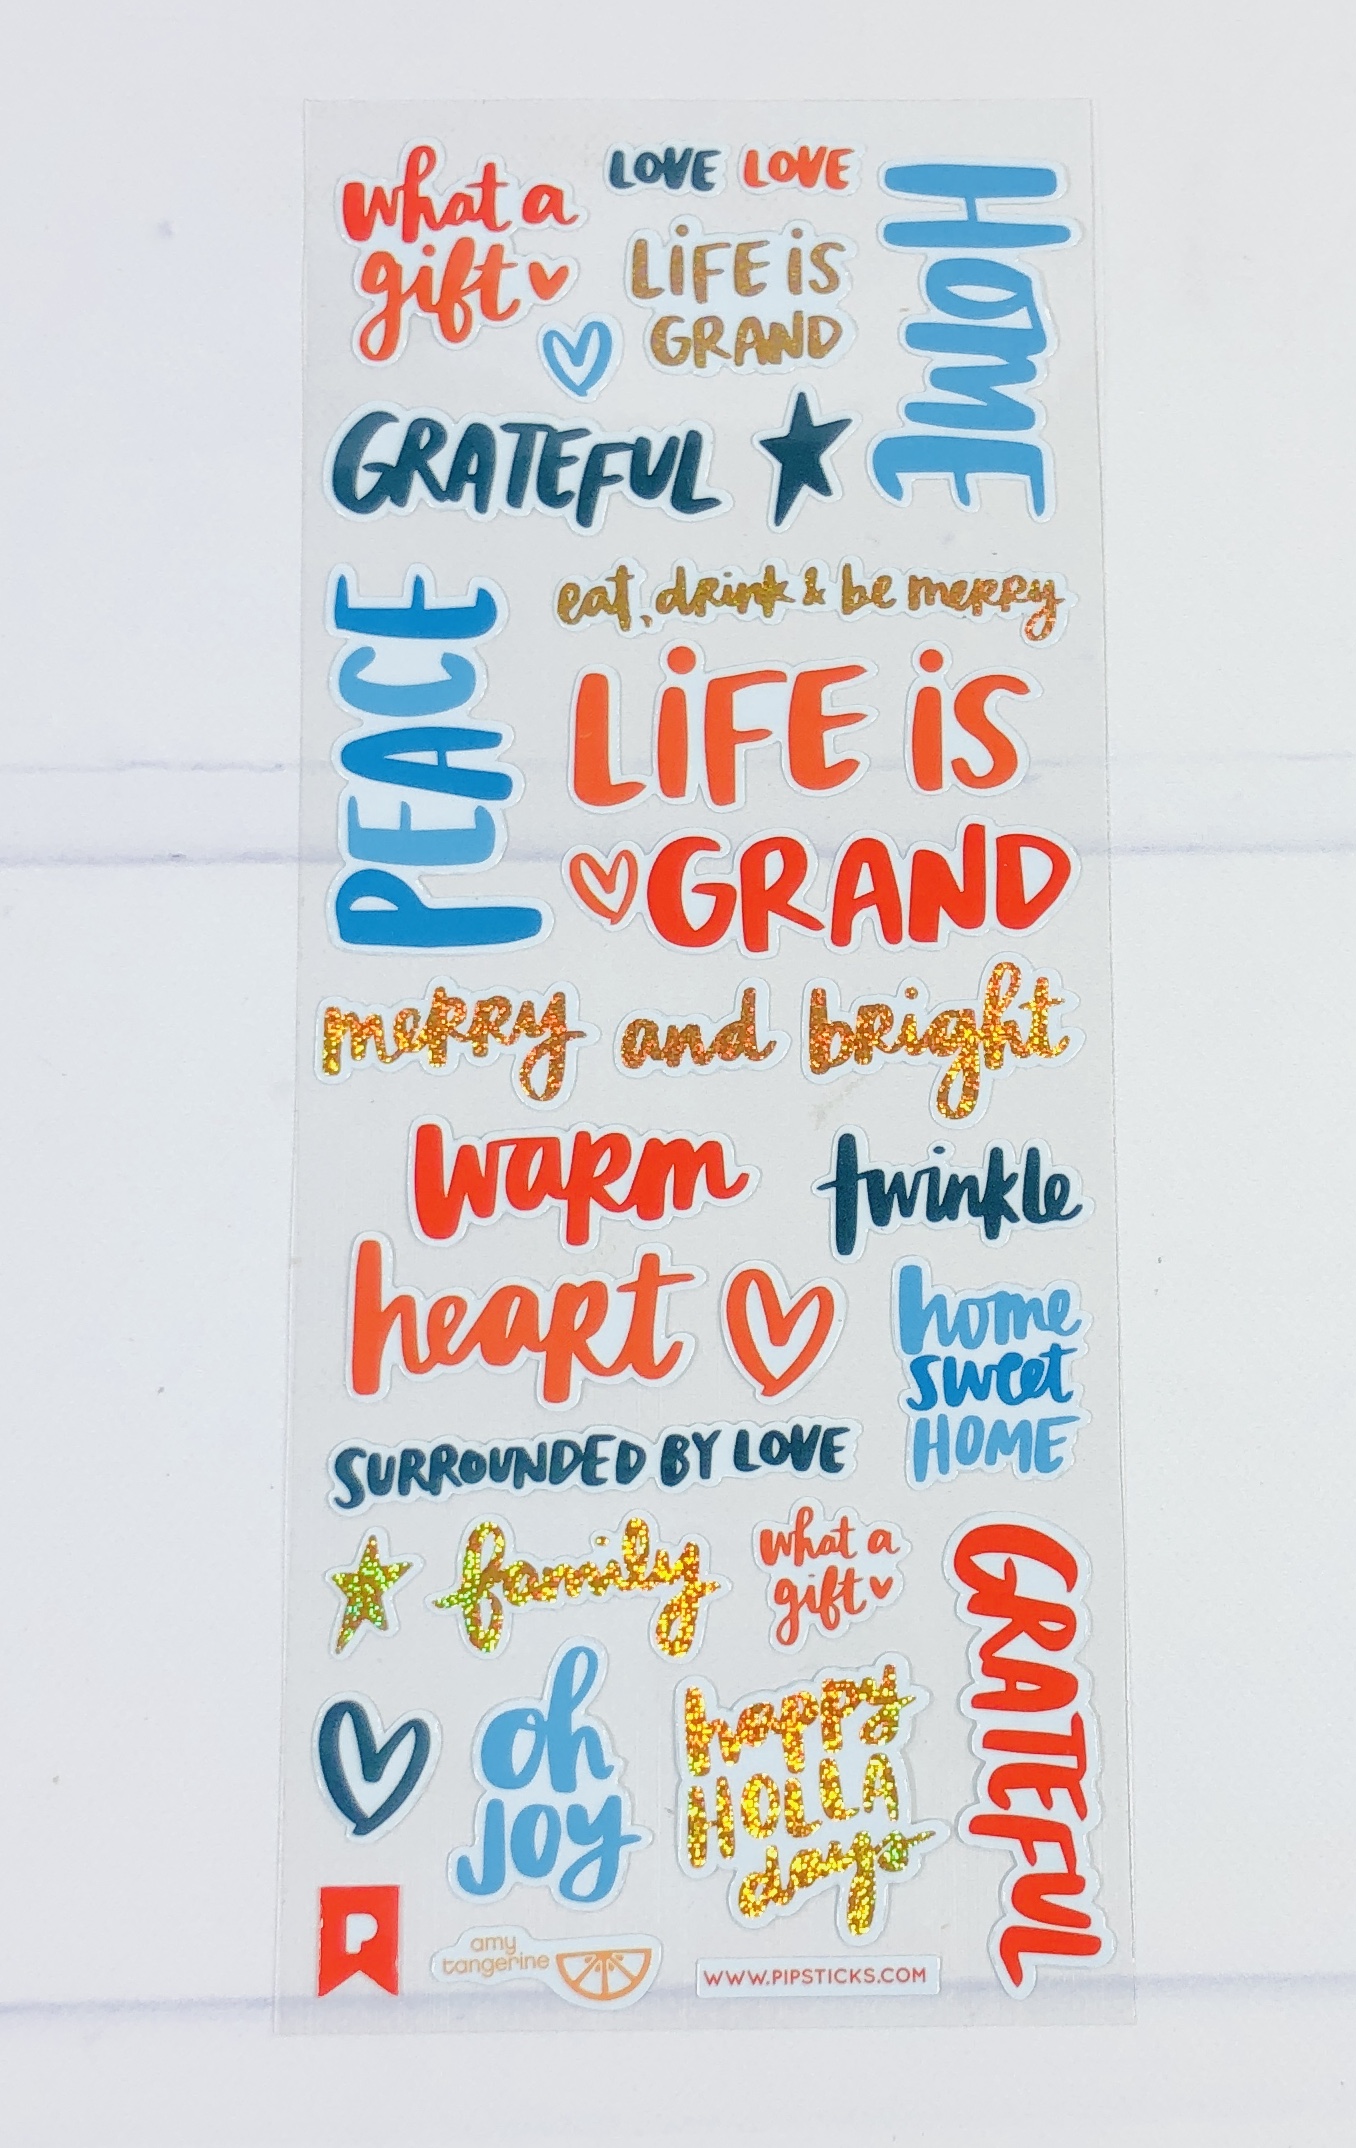 what a
gift
LOVE LOVE
LiFE iS
GRAND
HOME
GRATEFUL
PEACE
eat, drink & be merry
LiFE iS
GRAND
merry and bright
warm
heart
twinkle
home
sweet
HOME
SURROUNDED BY LOVE
family
what a
gift
GRATEFUL
oh
JOY
happy
HOLLA
days
P
amy
tangerine
WWW.PIPSTICKS.COM